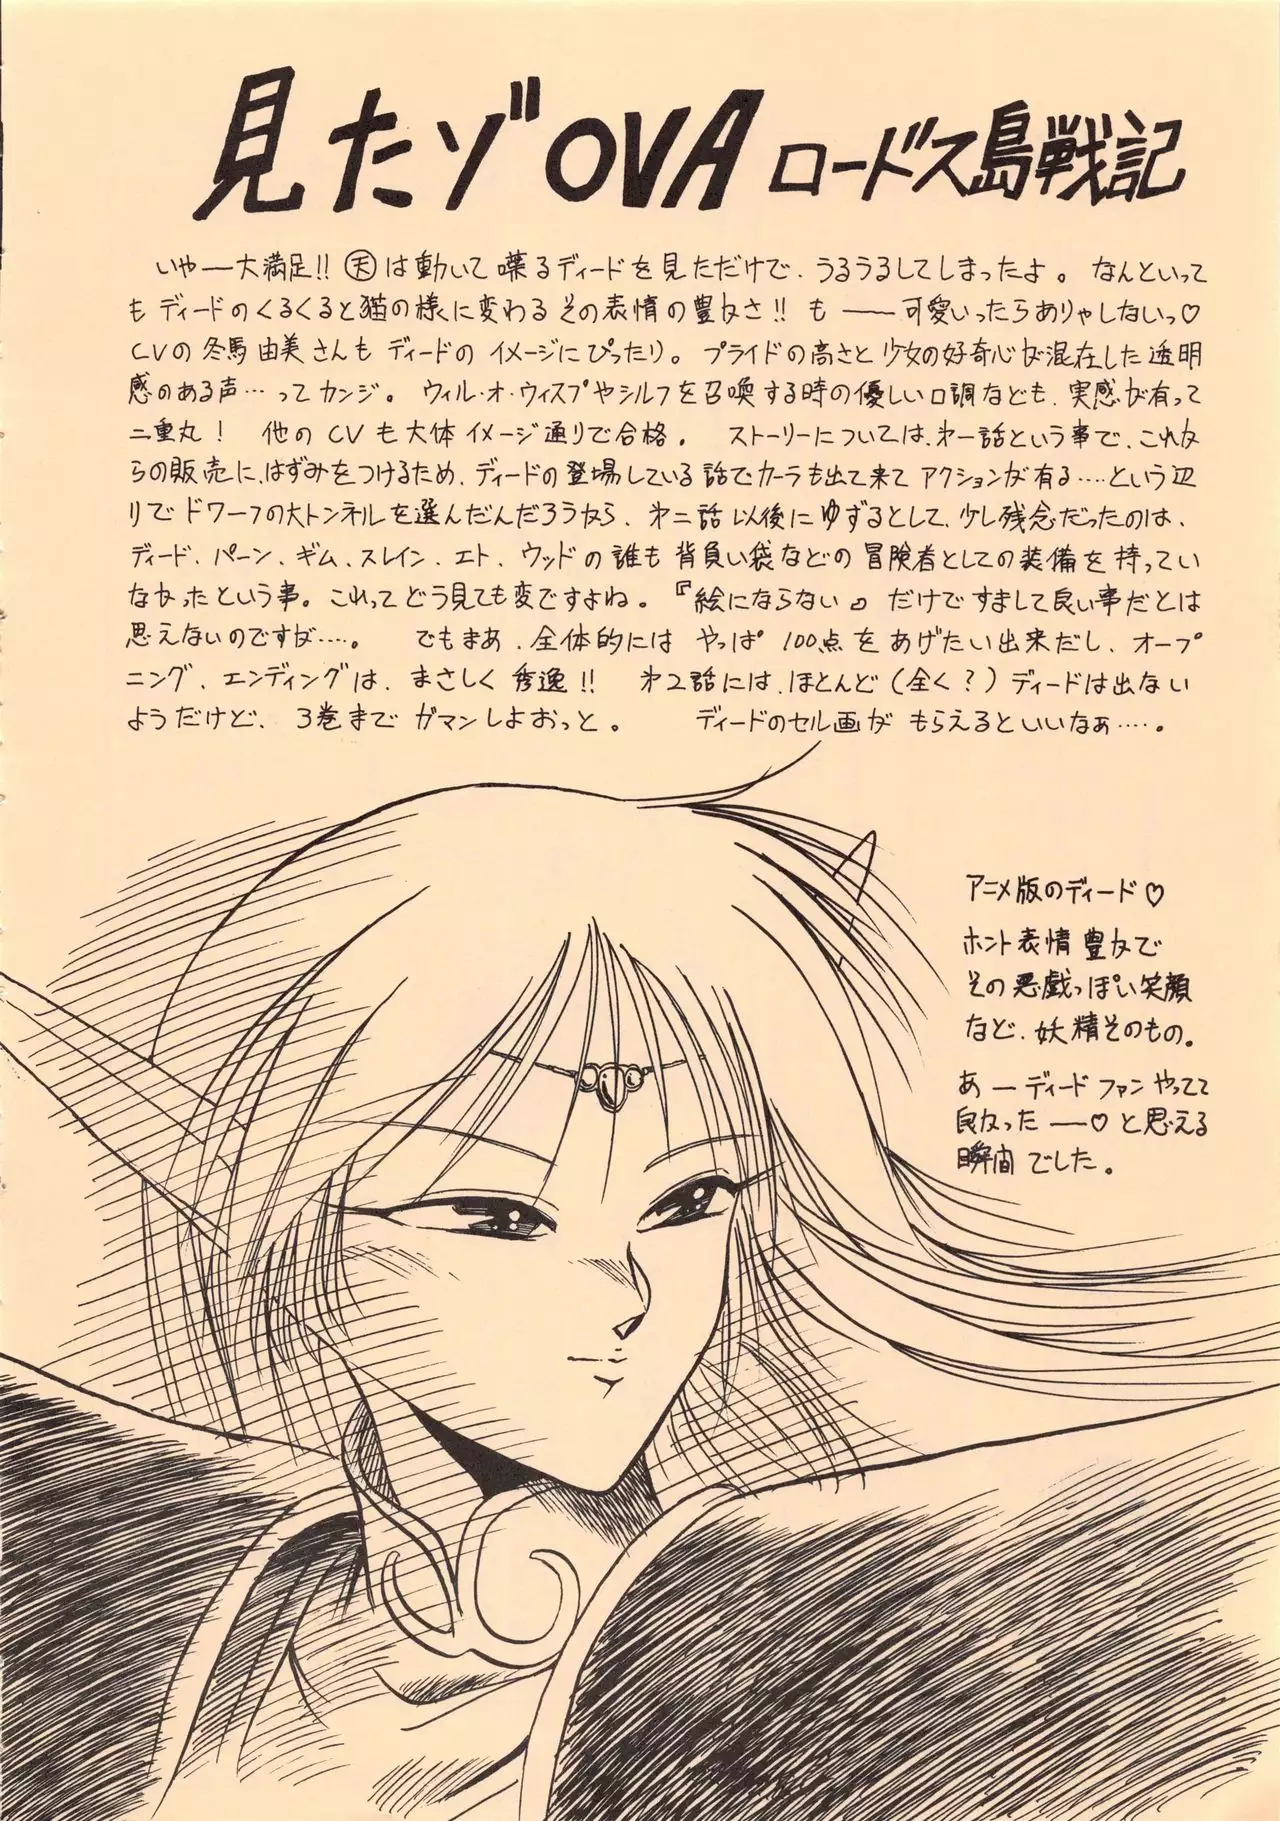 見たゾ OVA ロードス島戦記
いやー大満足!! 天は動いて喋るディードを見ただけで、うるうるしてしまったよ。なんといって
もディードのくるくると猫の様に変わるその表情の豊かさ!! も――可愛いったらありゃしないっ♡
CVの冬馬由美さんもディードのイメージにぴったり。プライドの高さと少女の好奇心が混在した透明
感のある声…ってカンジ。ウィル・オ・ウィスプやシルフを召喚する時の優しい口調なども、実感が有って
二重丸! 他のCVも大体イメージ通りで合格。ストーリーについては、才一話という事で、これか
らの販売に、はずみをつけるため、ディードの登場している話でカーラも出て来てアクションが有る……という辺
りでドワーフの大トンネルを選んだんだろうから、才二話以後にゆずるとして、少し残念だったのは、
ディード、パーン、ギム、スレイン、エト、ウッドの誰も背負い袋などの冒険者としての装備を持ってい
なかったという事。これってどう見ても変ですよね。『絵にならない。』だけですまして良い事だとは
思えないのですが……。でもまあ、全体的にはやっぱ100点をあげたい出来だし、オープ
ニング、エンディングは、まさしく秀逸!! 才2話には、ほとんど(全く?)ディードは出ない
ようだけど、3巻までガマンしよおっと。ディードのセル画がもらえるといいなぁ……。
アニメ版のディード♡
ホント表情豊かで
その悪戯っぽい笑顔
など、妖精そのもの。
あーディードファンやってて
良かったー♡と思える
瞬間でした。